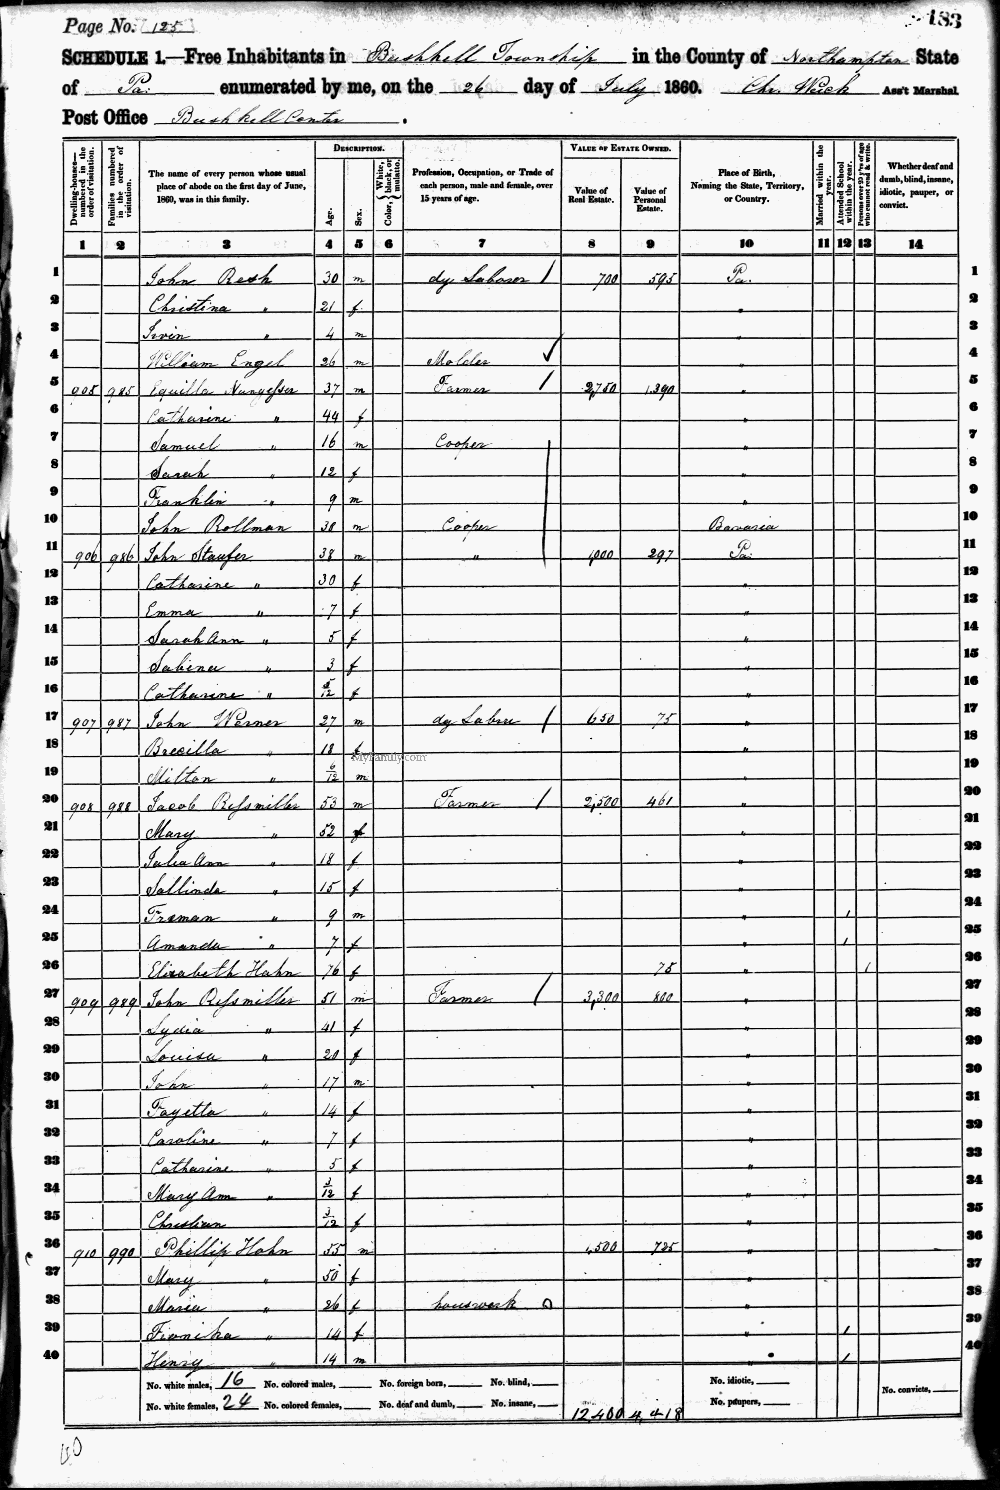 Page No. 125
183
SCHEDULE 1.—Free Inhabitants in Bushkell Township in the County of Northampton State
of Pa: enumerated by me, on the 26 day of July 1860. Chr. Weick Ass't Marshal
Post Office Bushkell Center.
Dwelling-houses—numbered in the order of visitation. Families numbered in the order of visitation. The name of every person whose usual place of abode on the first day of June, 1860, was in this family. DESCRIPTION. Age. Sex. Color, { White, black, or mulatto. Profession, Occupation, or Trade of each person, male and female, over 15 years of age. VALUE OF ESTATE OWNED. Value of Real Estate. Value of Personal Estate. Place of Birth, Naming the State, Territory, or Country. Married within the year. Attended School within the year. Persons over 20 y'rs of age who cannot read & write. Whether deaf and dumb, blind, insane, idiotic, pauper, or convict.
1 2 3 4 5 6 7 8 9 10 11 12 13 14
1 John Resh 30 m dy Laborer / 700 595 Pa. 1
2 Christina " 21 f " 2
3 Irvin " 4 m " 3
4 William Engel 26 m Molder ✓ " 4
5 905 985 Equilla Nungesser 37 m Farmer / 2,750 1,390 " 5
6 Catharine " 44 f " 6
7 Samuel " 16 m Cooper " 7
8 Sarah " 12 f " 8
9 Franklin " 9 m " 9
10 John Rollman 38 m Cooper Bavaria 10
11 906 986 John Staufer 38 m " 1,000 297 Pa: 11
12 Catharine " 30 f " 12
13 Emma " 7 f " 13
14 Sarah Ann " 5 f " 14
15 Sabina " 3 f " 15
16 Catharine " 5/12 f " 16
17 907 987 John Werner 27 m dy Labrer / 650 75 " 17
18 Brecilla " 18 f " 18
MyFamily.com
19 Milton " 6/12 m " 19
20 908 988 Jacob Ressmiller 53 m Farmer / 2,500 461 " 20
21 Mary " 52 f " 21
22 Julia Ann " 18 f " 22
23 Sallinda " 15 f " 23
24 Freman " 9 m " 1 24
25 Amanda " 7 f " 1 25
26 Elizabeth Hahn 76 f 75 " 1 26
27 909 989 John Ressmiller 51 m Farmer / 3,300 800 " 27
28 Lydia " 41 f " 28
29 Louisa " 20 f " 29
30 John " 17 m " 30
31 Fayetta " 14 f " 31
32 Caroline " 7 f " 32
33 Catharine " 5 f " 33
34 Mary Ann " 3/12 f " 34
35 Christian 3/12 f " 35
36 910 990 Phillip Hahn 55 m 1,500 725 " 36
37 Mary " 50 f " 37
38 Maria " 26 f houswork " 38
39 " 14 f " 1 39
40 Henry " 14 m " 1 40
No. white males, 16 No. colored males, No. foreign born, No. blind, No. idiotic,
No. convicts,
No. white females, 24 No. colored females, No. deaf and dumb, No. insane, 12,400 4,418 No. paupers,